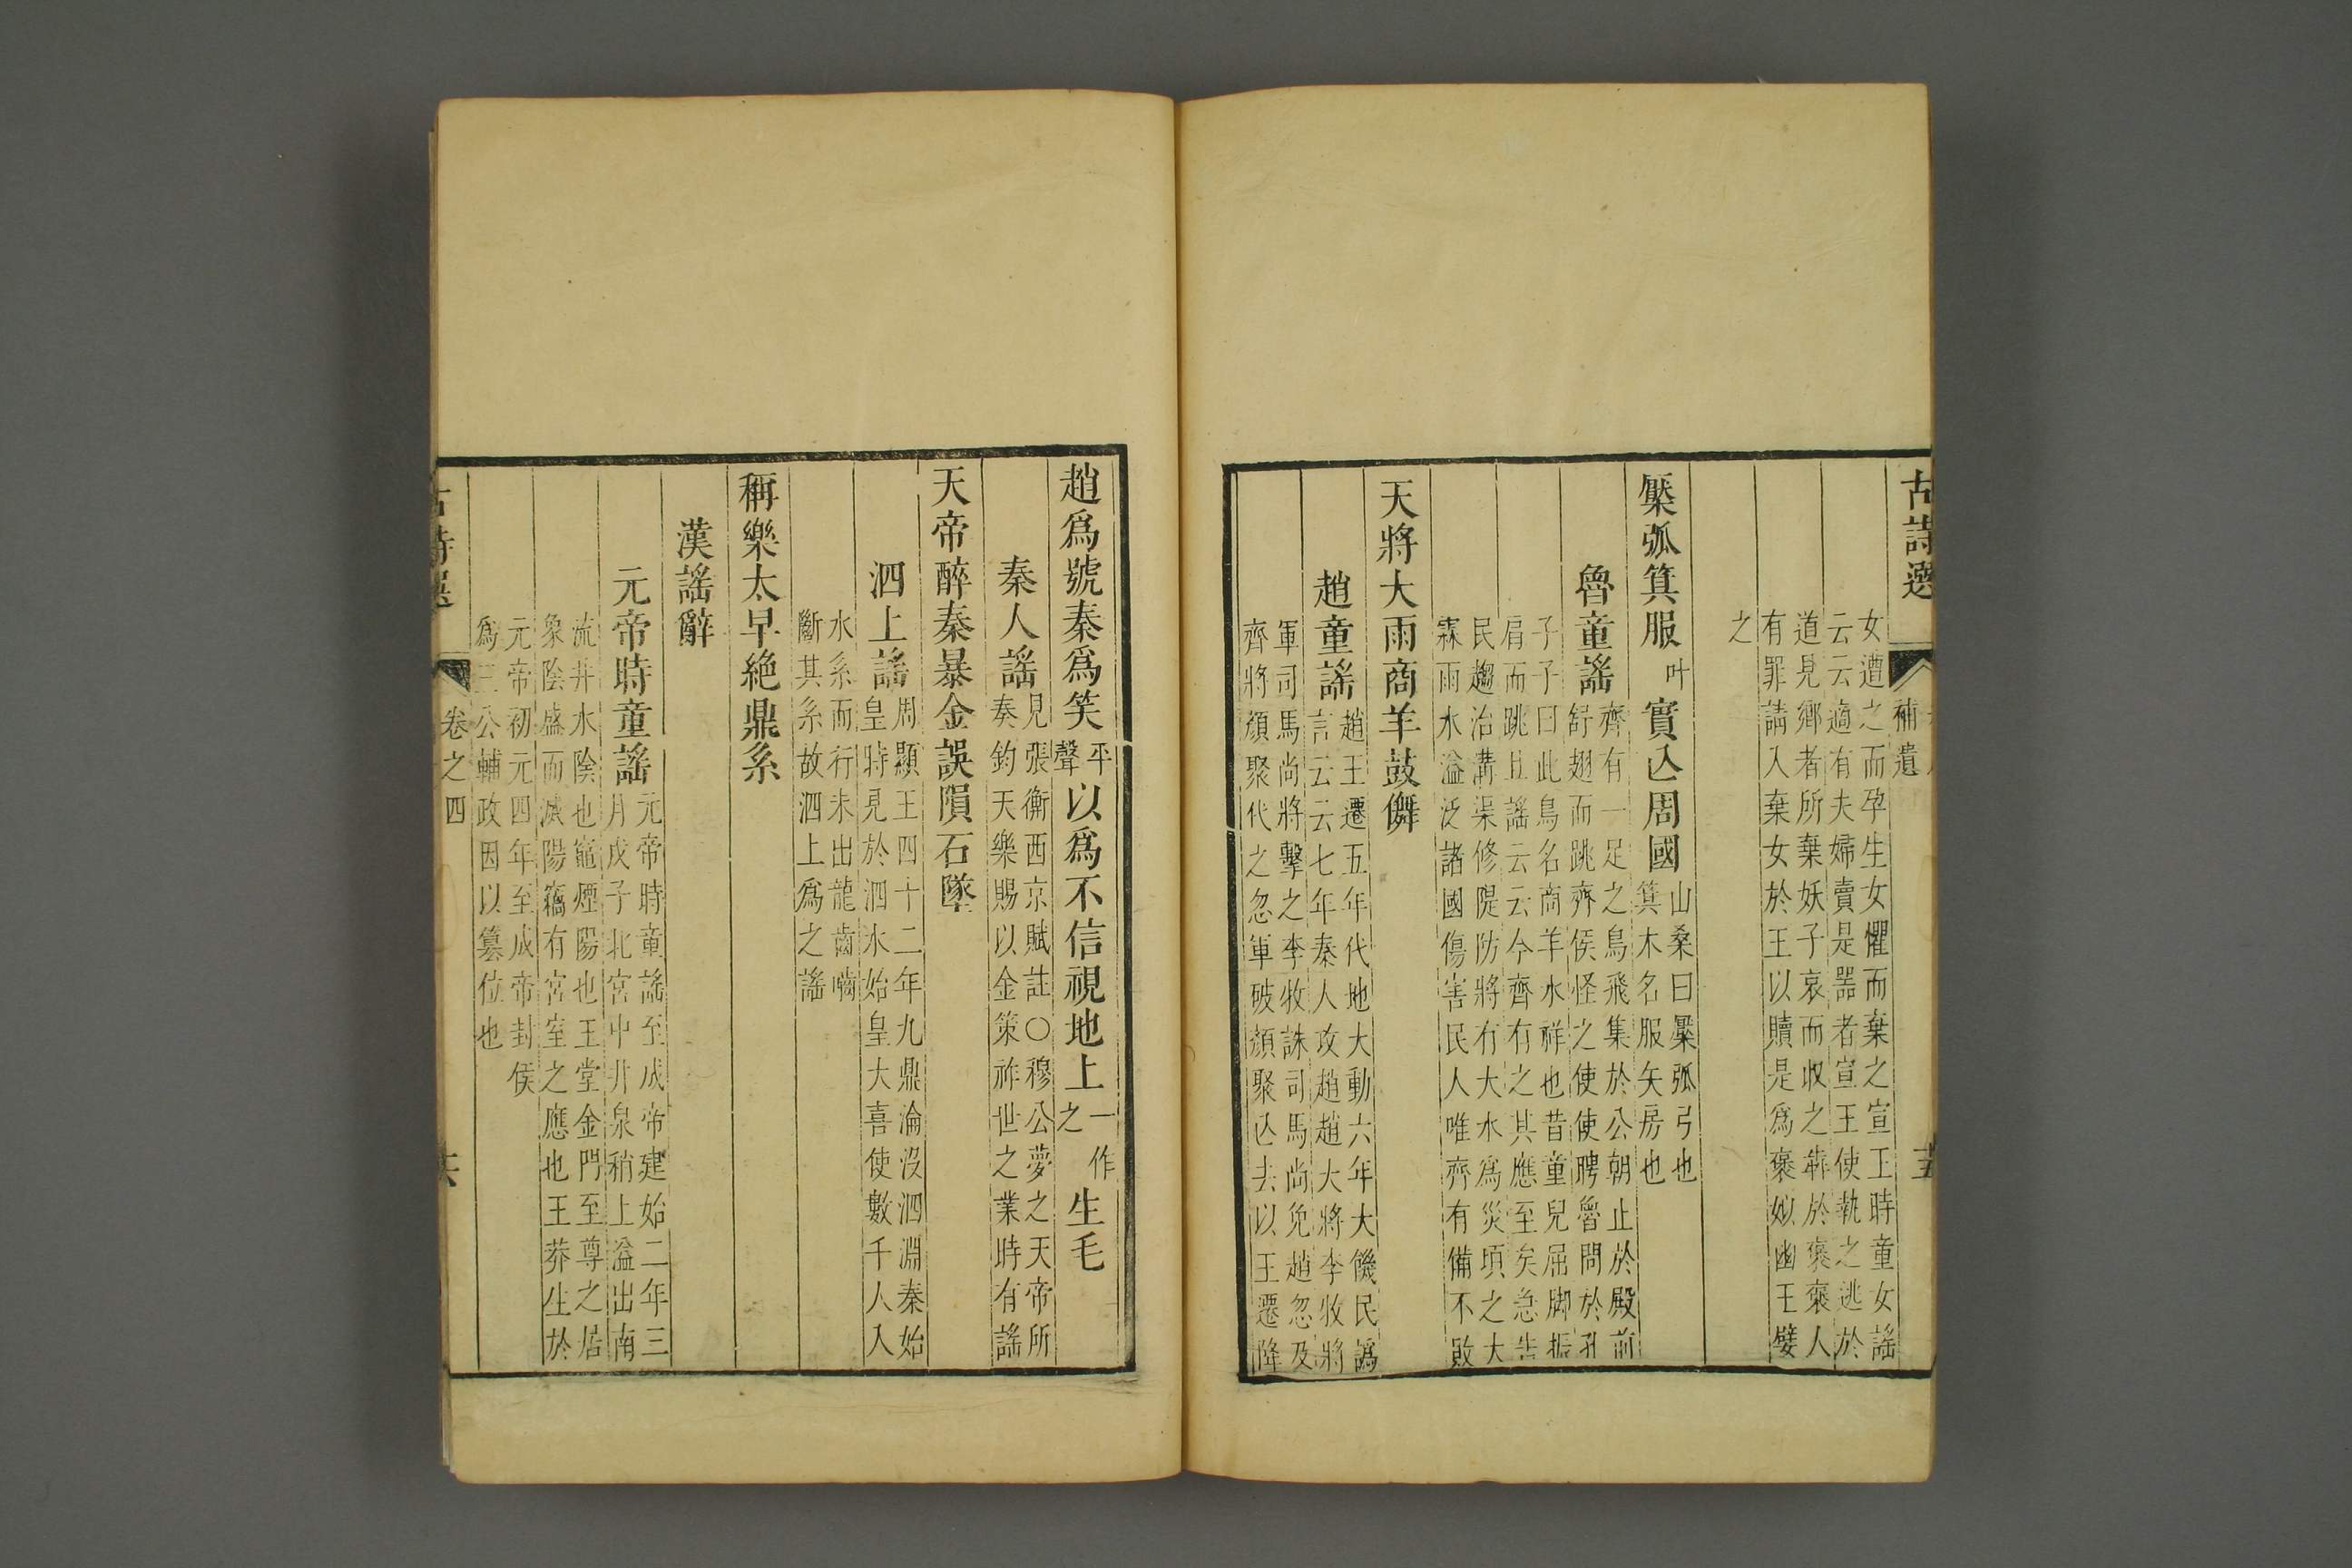 古詩選
補遺
女遭之而孕生女懼而棄之宣王時童女謠
云云適有夫婦賣是器者宣王使執之逃於
道見鄉者所棄妖子哀而收之犇於褒褒人
有罪請入棄女於王以贖是為褒姒幽王嬖
之
檿弧箕服叶實亾周國
山桑曰檿弧弓也
箕木名服矢房也
魯童謠
齊有一足之鳥飛集於公朝止於殿前
舒翅而跳齊侯怪之使使聘魯問於孔
子子曰此鳥名商羊水祥也昔童兒屈脚振
肩而跳且謠云云今齊有之其應至矣急告
民趨治溝渠修隄防將有大水為災頃之大
霖雨水溢泛諸國傷害民人唯齊有備不敗
天將大雨商羊鼓儛
趙童謠
趙王遷五年代地大動六年大饑民譌
言云云七年秦人攻趙趙大將李牧將
軍司馬尚將擊之李牧誅司馬尚免趙忽及
齊將顏聚代之忽軍破顏聚亾去以王遷降
趙爲號秦爲笑平聲以爲不信視地上一作之生毛
秦人謠
見張衡西京賦註○穆公夢之天帝所
奏鈞天樂賜以金策祚世之業時有謠
天帝醉秦暴金誤隕石墜
泗上謠
周顯王四十二年九鼎淪沒泗淵秦始
皇時見於泗水始皇大喜使數千人入
水系而行未出龍齒嚙
斷其系故泗上爲之謠
稱樂太早絶鼎系
漢謠辭
元帝時童謠
元帝時童謠至成帝建始二年三
月戊子北宮中井泉稍上溢出南
流井水陰也竈煙陽也玉堂金門至尊之居
象陰盛而滅陽竊有宮室之應也王莽生於
元帝初元四年至成帝封侯
爲三公輔政因以簒位也
卷之四